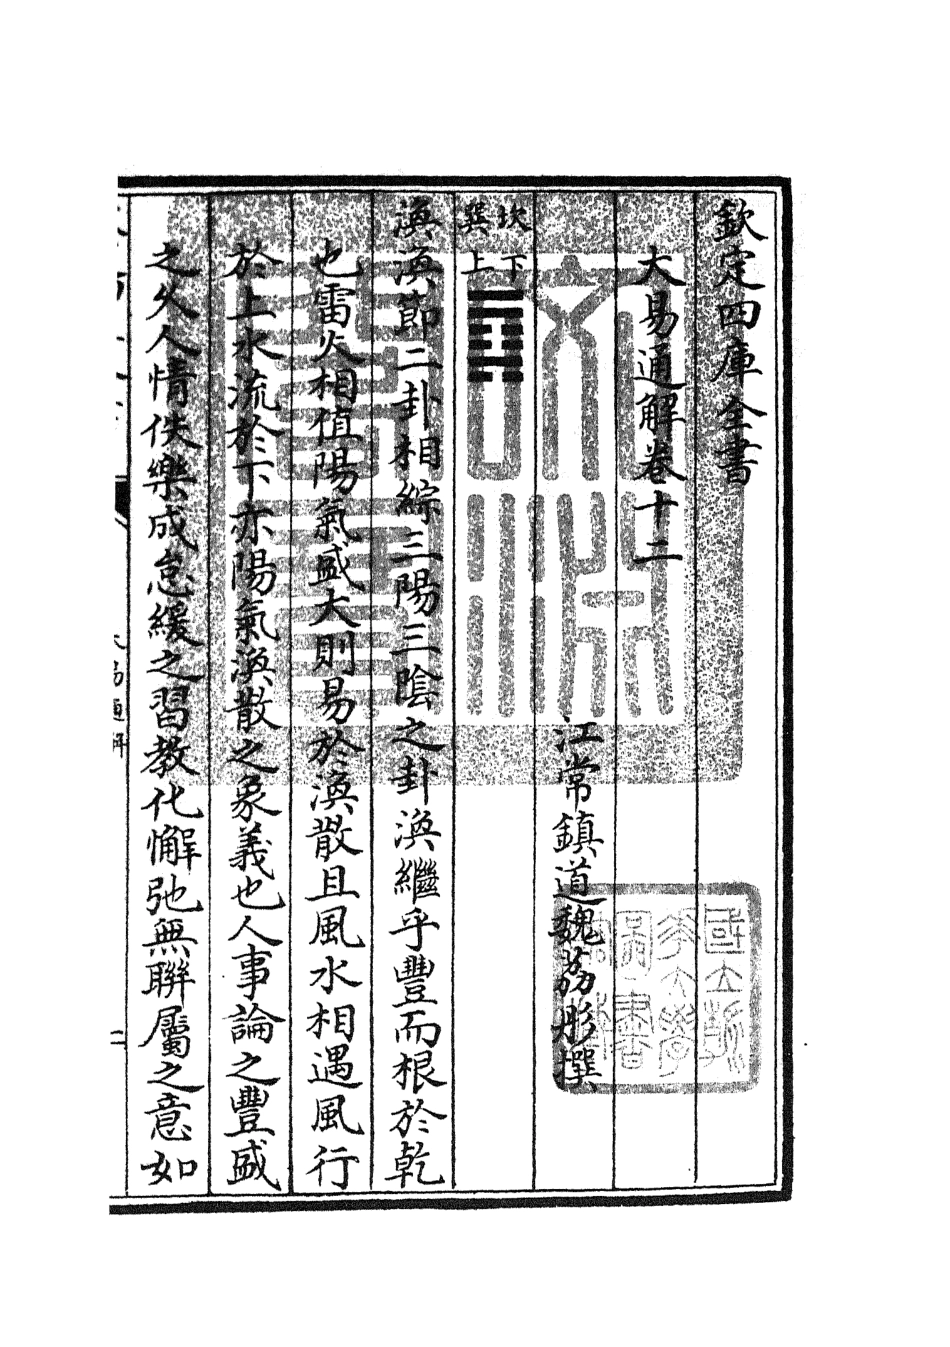 欽定四庫全書
大易通解卷十二
江常鎮道魏荔彤撰
坎下
巽上
渙渙節二卦相綜三陽三陰之卦渙繼乎豐而根於乾
也雷火相值陽氣盛大則易於渙散且風水相遇風行
於上水流於下亦陽氣渙散之象義也人事論之豐盛
之久人情佚樂成怠緩之習教化懈弛無聯屬之意如
大易通解